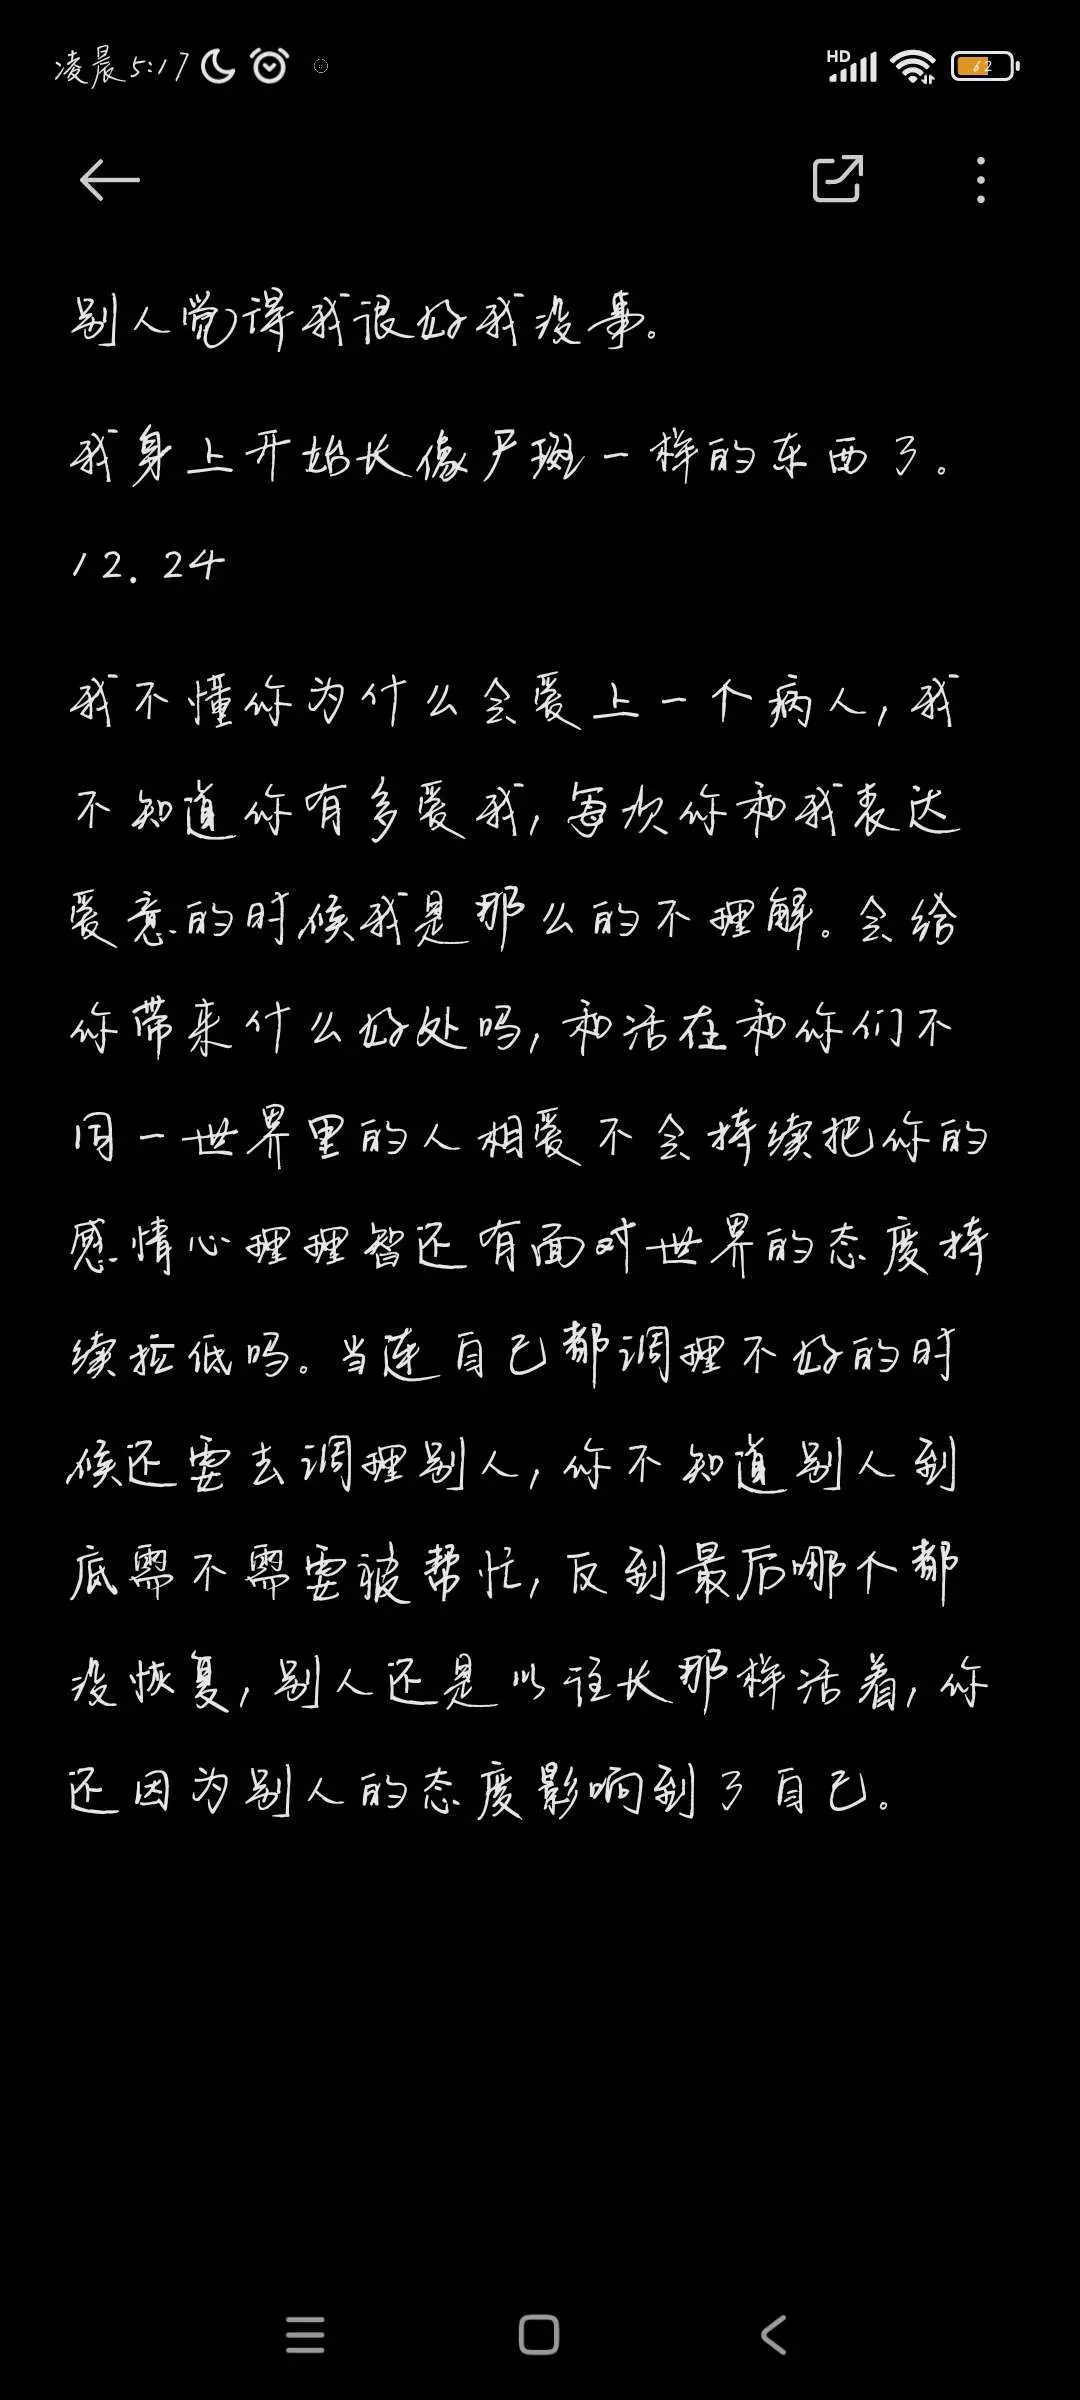 凌晨5:17
HD
62
别人觉得我很好我没事。
我身上开始长像尸斑一样的东西了。
12.24
我不懂你为什么会爱上一个病人，我
不知道你有多爱我，每次你和我表达
爱意的时候我是那么的不理解。会给
你带来什么好处吗，和活在和你们不
同一世界里的人相爱不会持续把你的
感情心理理智还有面对世界的态度持
续拉低吗。当连自己都调理不好的时
候还要去调理别人，你不知道别人到
底需不需要被帮忙，反到最后哪个都
没恢复，别人还是以往长那样活着，你
还因为别人的态度影响到了自己。